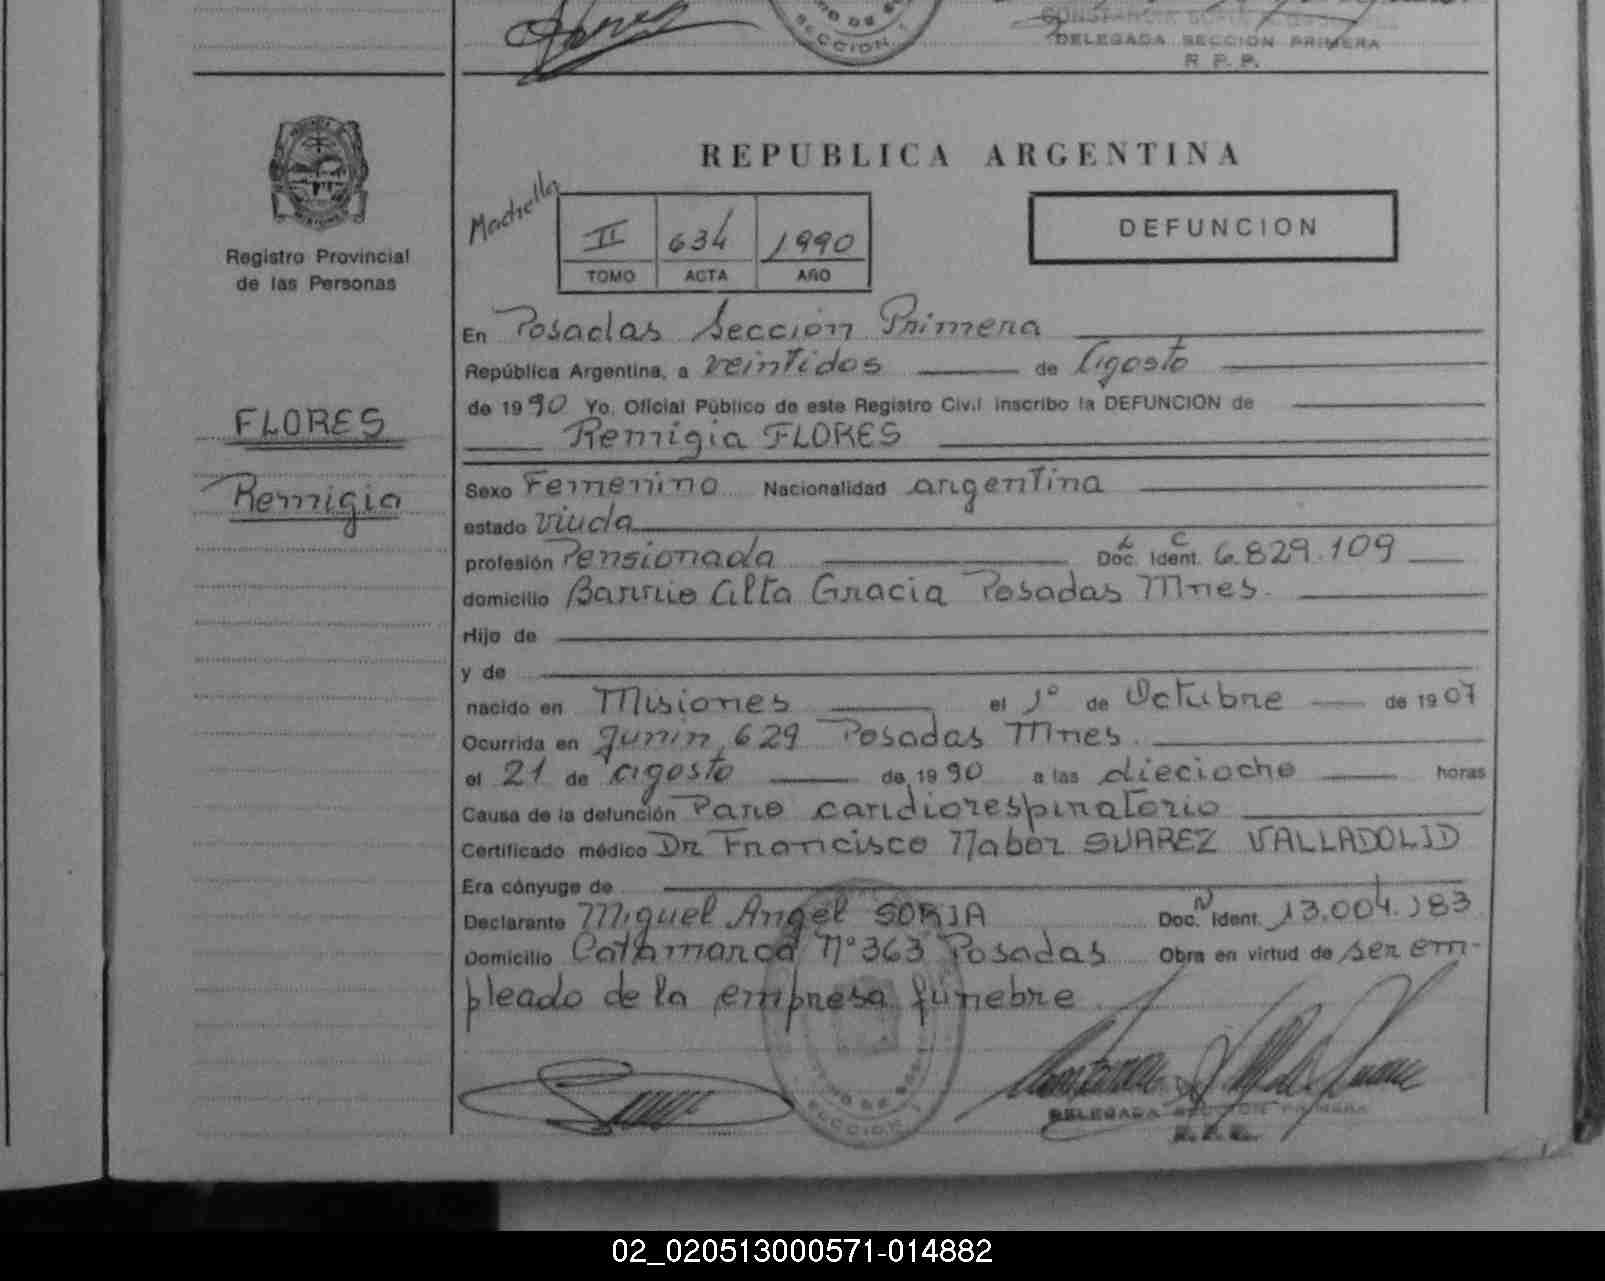 SECCION 1
DELEGADA SECCION PRIMERA
R. P. P.
Registro Provincial
de las Personas
FLORES
Remigia
REPUBLICA ARGENTINA
II 634 1990
TOMO ACTA AÑO
DEFUNCION
En Posadas Sección Primera
República Argentina, a veintidos de Agosto
de 1990 Yo, Oficial Público de este Registro Civil inscribo la DEFUNCION de
Remigia FLORES
Sexo Femenino Nacionalidad argentina
estado viuda
profesión Pensionada Doc. Ident. L C 6.829.109
domicilio Barrio Alta Gracia Posadas Mnes.
Hijo de
y de
nacido en Misiones el 1º de Octubre de 1907
Ocurrida en Junin 629 Posadas Mnes.
el 21 de agosto de 1990 a las dieciocho horas
Causa de la defunción Paro cardiorespiratorio
Certificado médico Dr Francisco Nabor SUAREZ VALLADOLID
Era cónyuge de
Declarante Miguel Angel SORIA Doc. N Ident. 13.004.183
Domicilio Catamarca Nº 363 Posadas Obra en virtud de ser em-
pleado de la empresa fúnebre
SECCION 1
DELEGADA SECCION PRIMERA
R. P. P.
02_020513000571-014882